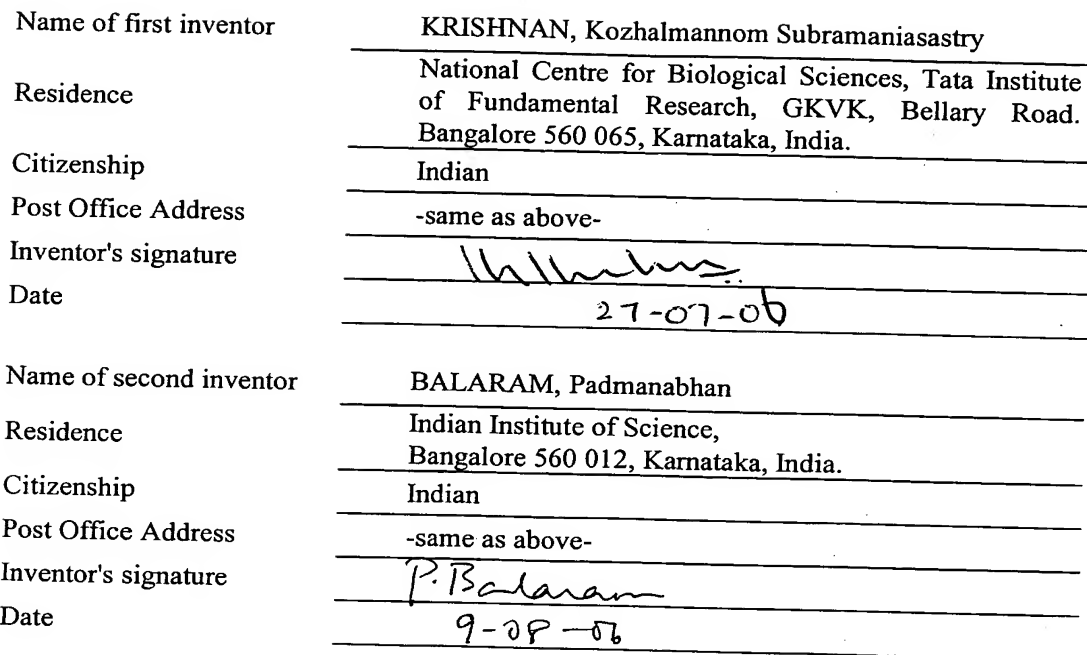 Name of first inventor KRISHNAN, Kozhalmannom Subramaniasastry
Residence National Centre for Biological Sciences, Tata Institute
of Fundamental Research, GKVK, Bellary Road.
Bangalore 560 065, Karnataka, India.
Citizenship Indian
Post Office Address -same as above-
Inventor's signature
Date 27-07-06
Name of second inventor BALARAM, Padmanabhan
Residence Indian Institute of Science,
Bangalore 560 012, Karnataka, India.
Citizenship Indian
Post Office Address -same as above-
Inventor's signature P. Balaram
Date 9-08-06